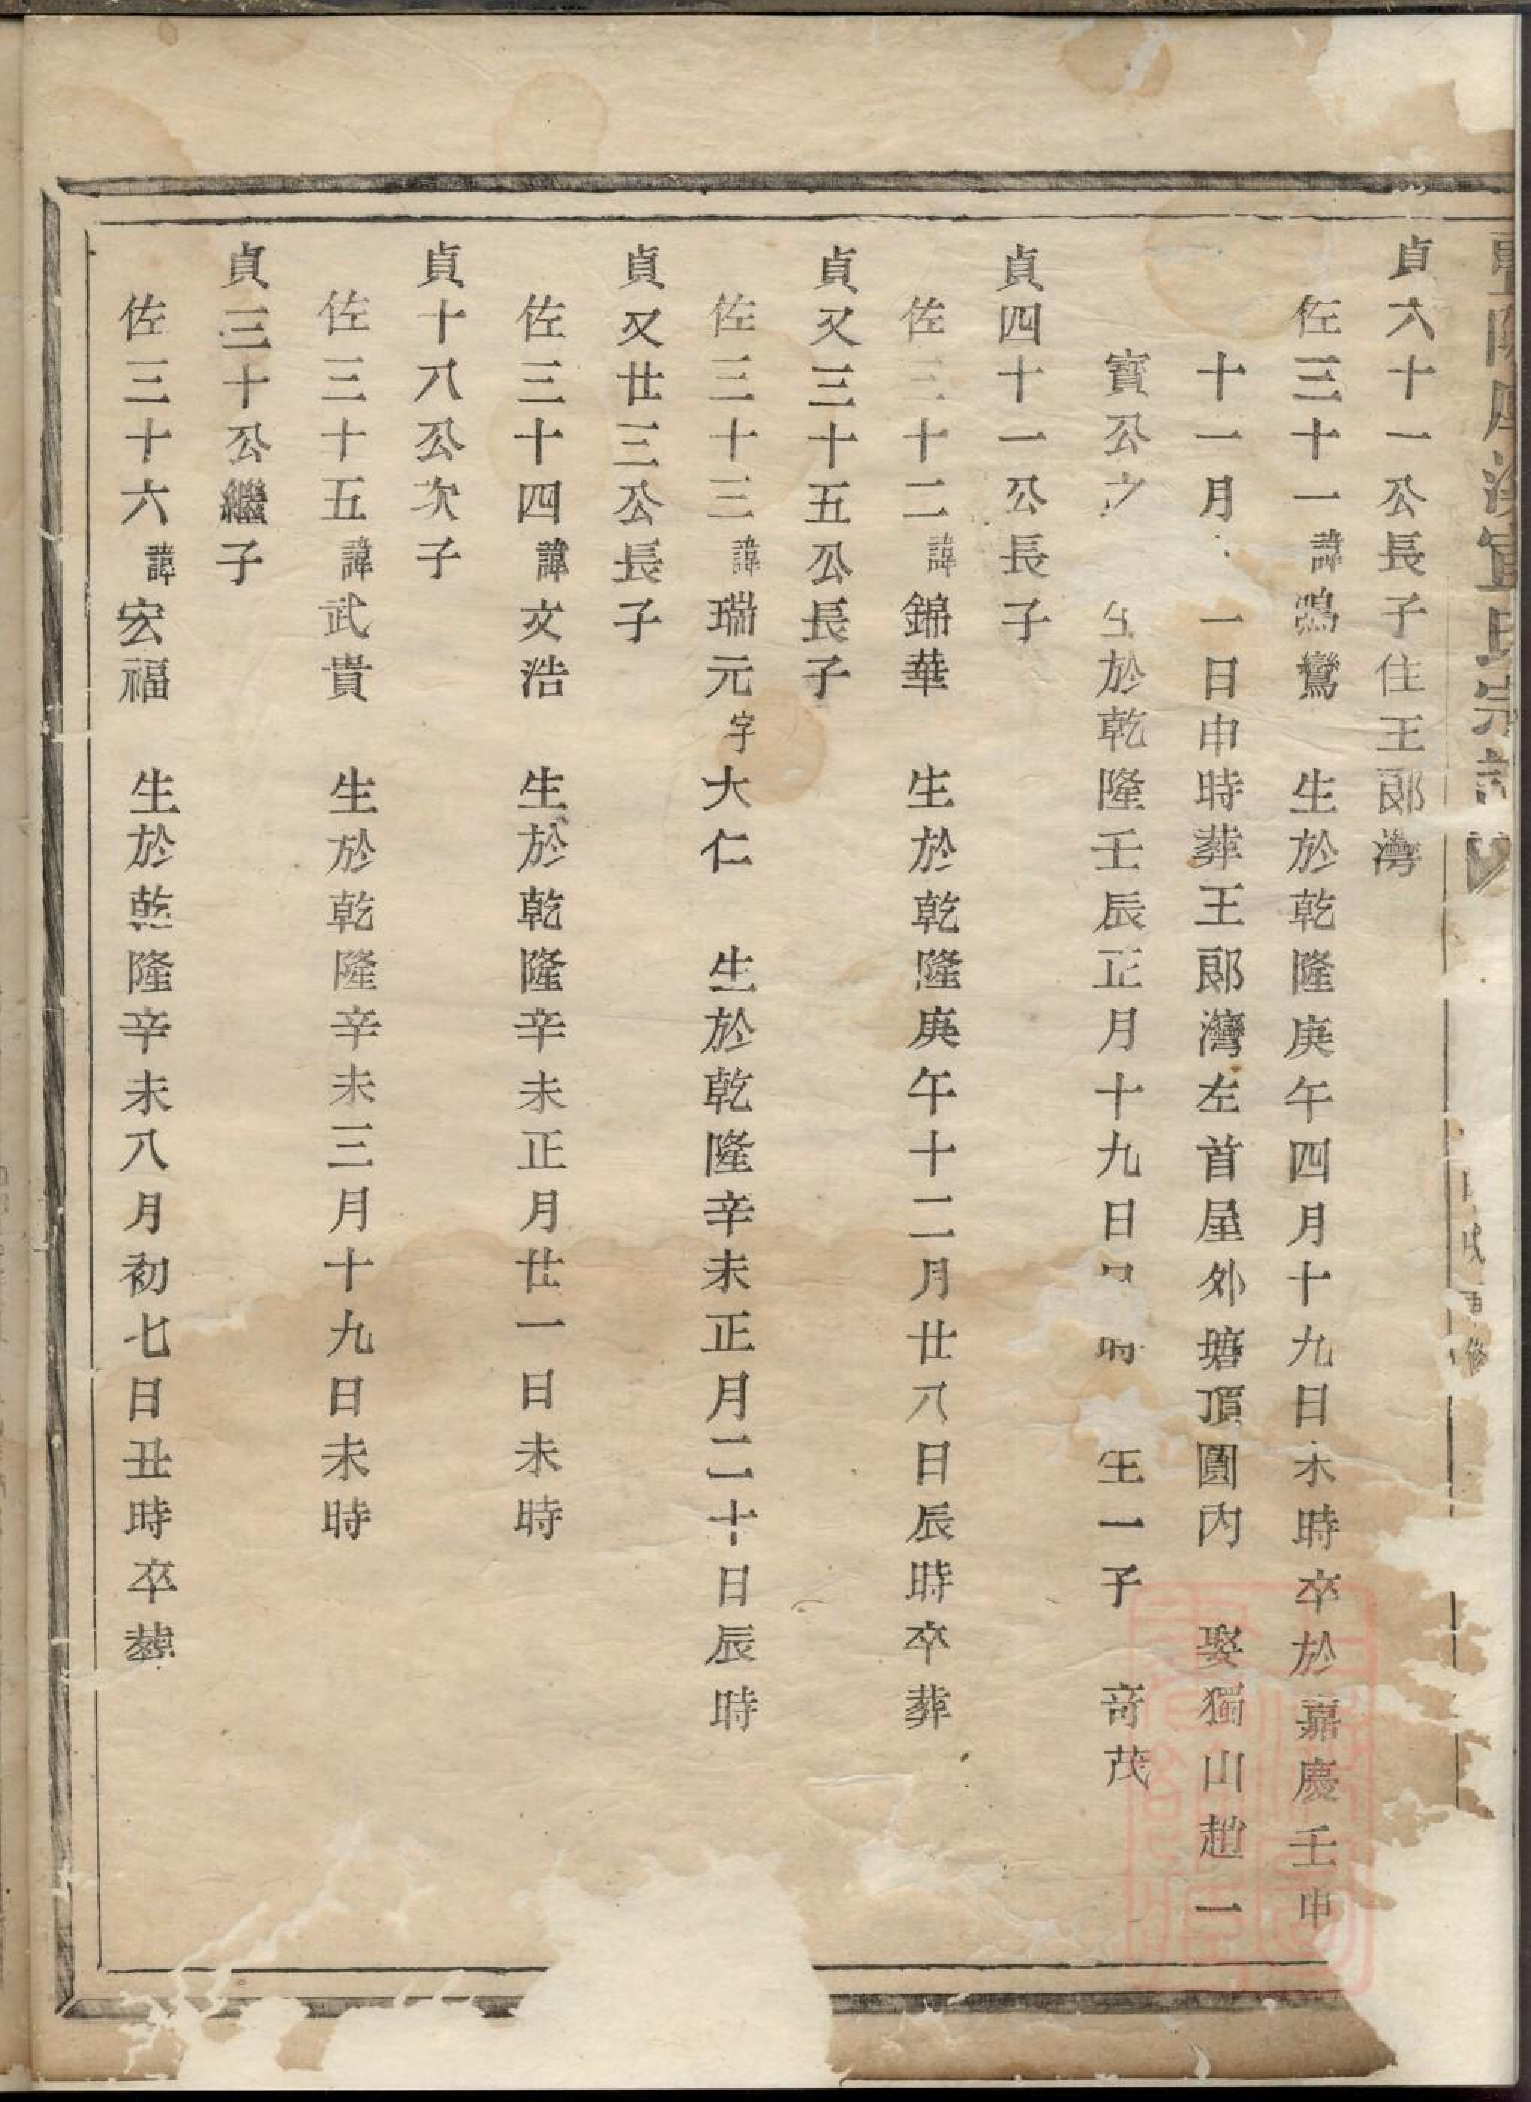 宣氏宗譜
貞六十一公長子住王郞灣
佐三十一諱鴻鸞 生於乾隆庚午四月十九日未時卒於嘉慶壬申
十一月 一日申時葬王郞灣左首屋外塘頂園内 娶獨山趙一
寶公之 生於乾隆壬辰正月十九日 時 生一子 奇茂
貞四十一公長子
佐三十二諱錦華 生於乾隆庚午十二月廿八日辰時卒葬
貞又三十五公長子
佐三十三諱瑞元字大仁 生於乾隆辛未正月二十日辰時
貞又廿三公長子
佐三十四諱文浩 生於乾隆辛未正月廿一日未時
貞十八公次子
佐三十五諱武貴 生於乾隆辛未三月十九日未時
貞三十公繼子
佐三十六諱宏福 生於乾隆辛未八月初七日丑時卒葬